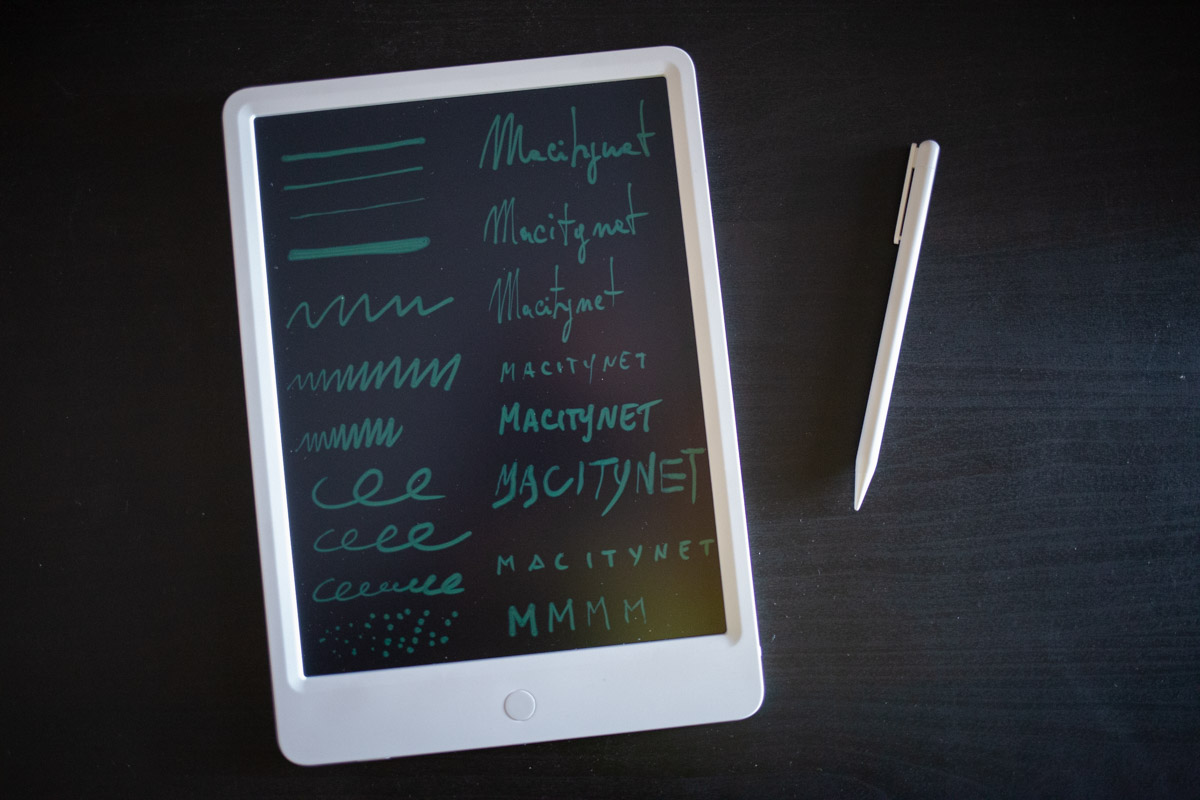 Macitynet
Macitynet
Macitynet
MACITYNET
MACITYNET
MACITYNET
MACITYNET
MMMM